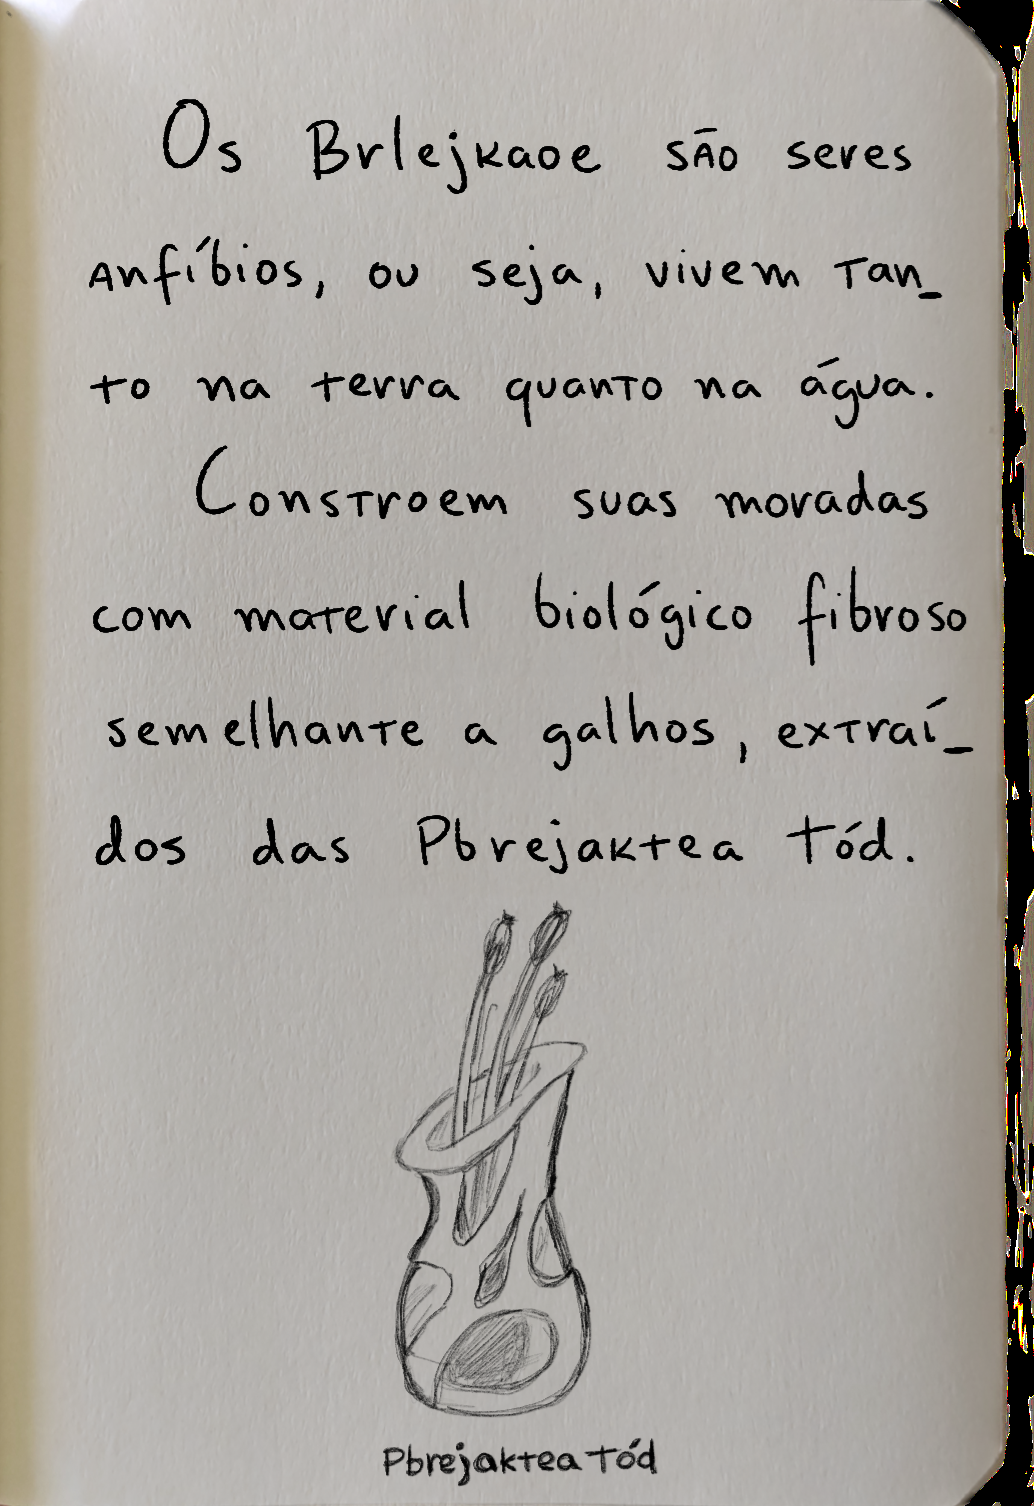 Os Brlejkaoe são seres
anfíbios, ou seja, vivem tan_
to na terra quanto na água.
Constroem suas moradas
com material biológico fibroso
semelhante a galhos, extraí_
dos das Pbrejaktea tód.
Pbrejaktea tód